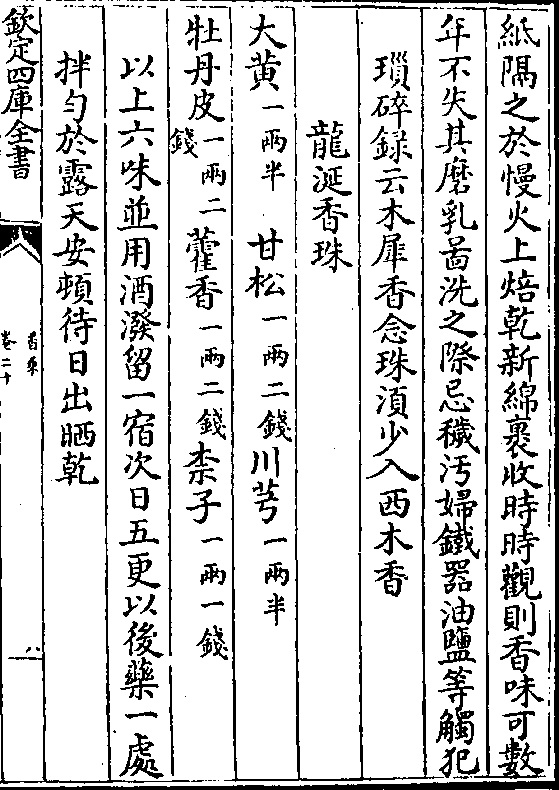 紙隔之於慢火上焙乾新綿裹收時時觀則香味可數
年不失其磨乳洗之際忌穢汚婦鐵器油鹽等觸犯
瑣碎録云木犀香念珠湏少入西木香
龍涎香珠
大黄一兩半 甘松一兩二錢川芎一兩半
牡丹皮一兩二錢藿香一兩二錢柰子一兩一錢
以上六味並用酒潑留一宿次日五更以後藥一處
拌匀於露天安頓待日出晒乾
欽定四庫全書
香乘
卷二十
八